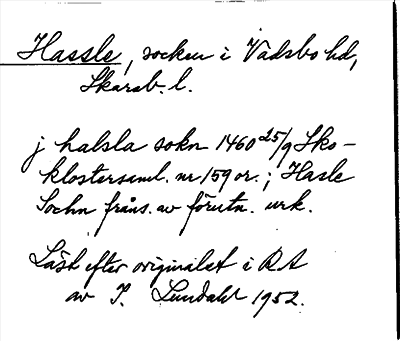 Hassle, socken i Vadsbo hd,
Skarab. l.
j halsla sokn 1460 25/9 Sko-
klostersaml. nr 159 or.; Hasle
Sochn påns. av förutn. urk.
Läst efter originalet i RA
av I. Lundahl 1952.